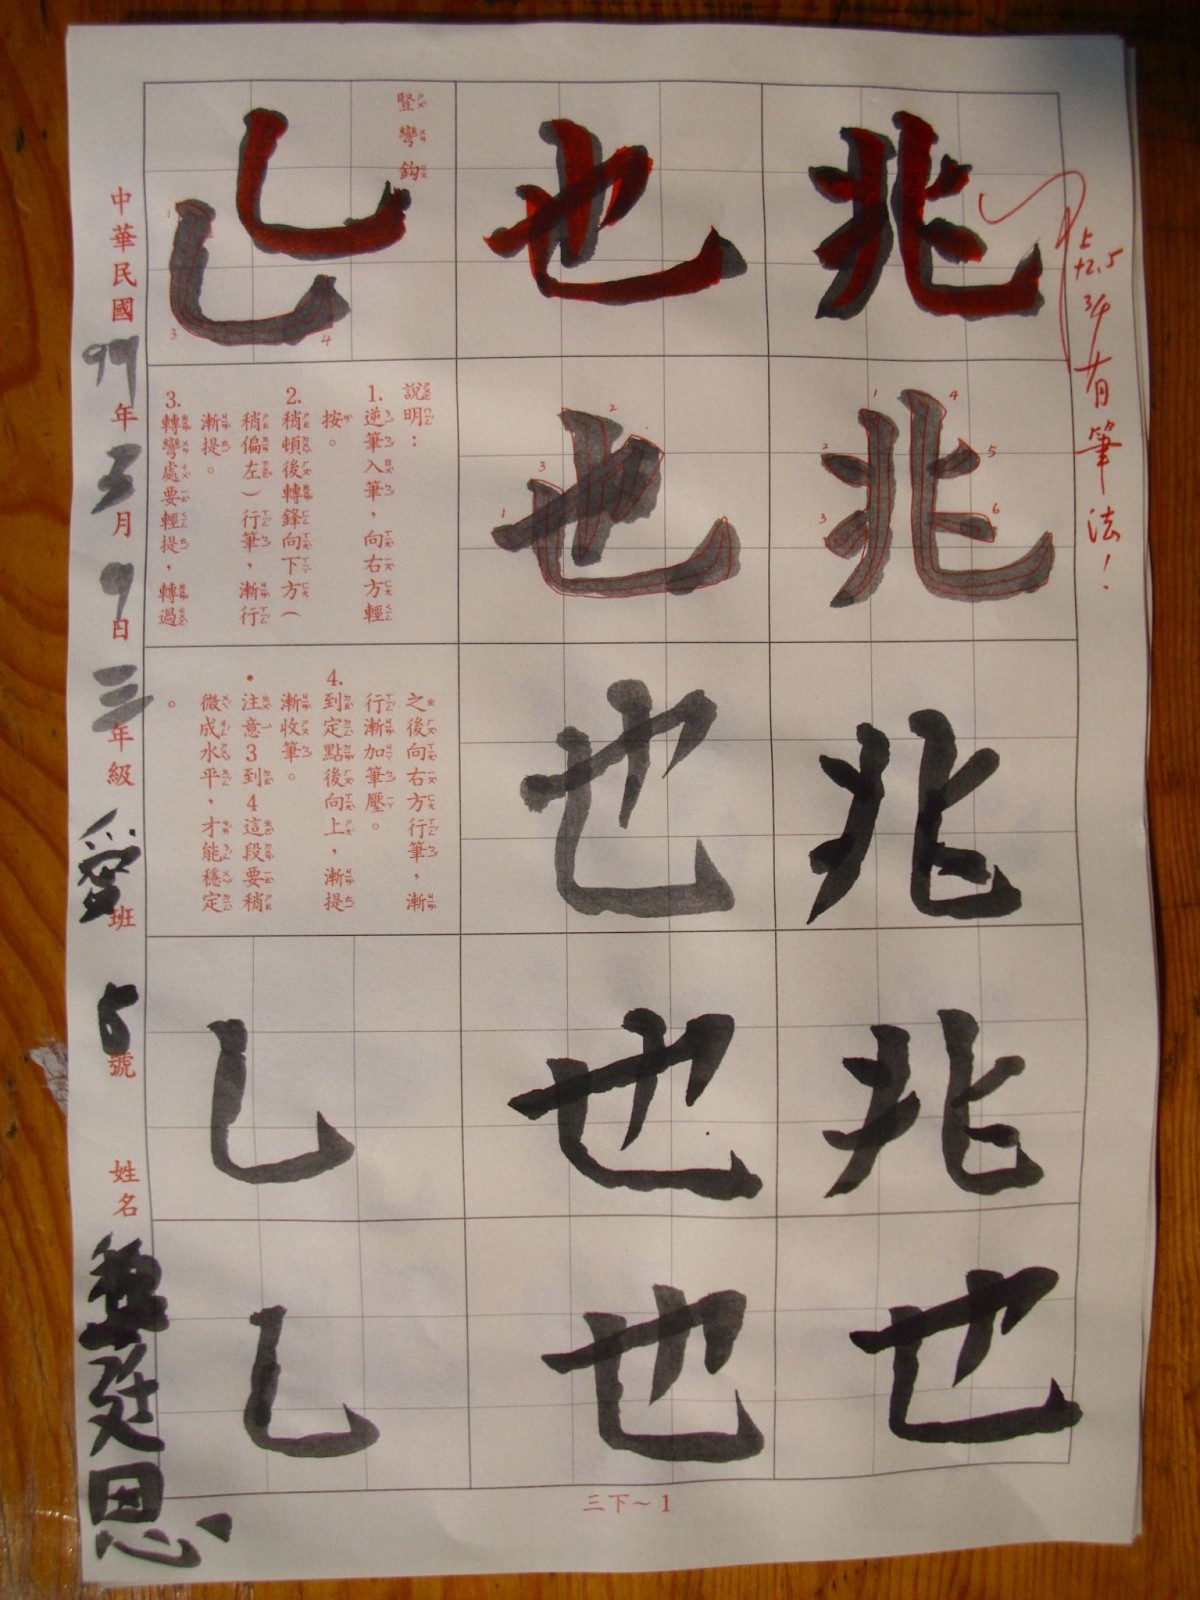 兆
兆
兆
兆
也
也
也
也
也
也
豎彎鈎
說明：
1.逆筆入筆，向右方輕
按。
2.稍頓後轉鋒向下方（
稍偏左）行筆，漸行
漸提。
3.轉彎處要輕提，轉過
之後向右方行筆，漸
行漸加筆壓。
4.到定點後向上，漸提
漸收筆。
•注意3到4這段要稍
微成水平，才能穩定
。
中華民國99年3月9日三年級愛班5號 姓名
上
+2.5
3/9
有筆法！
三下～1